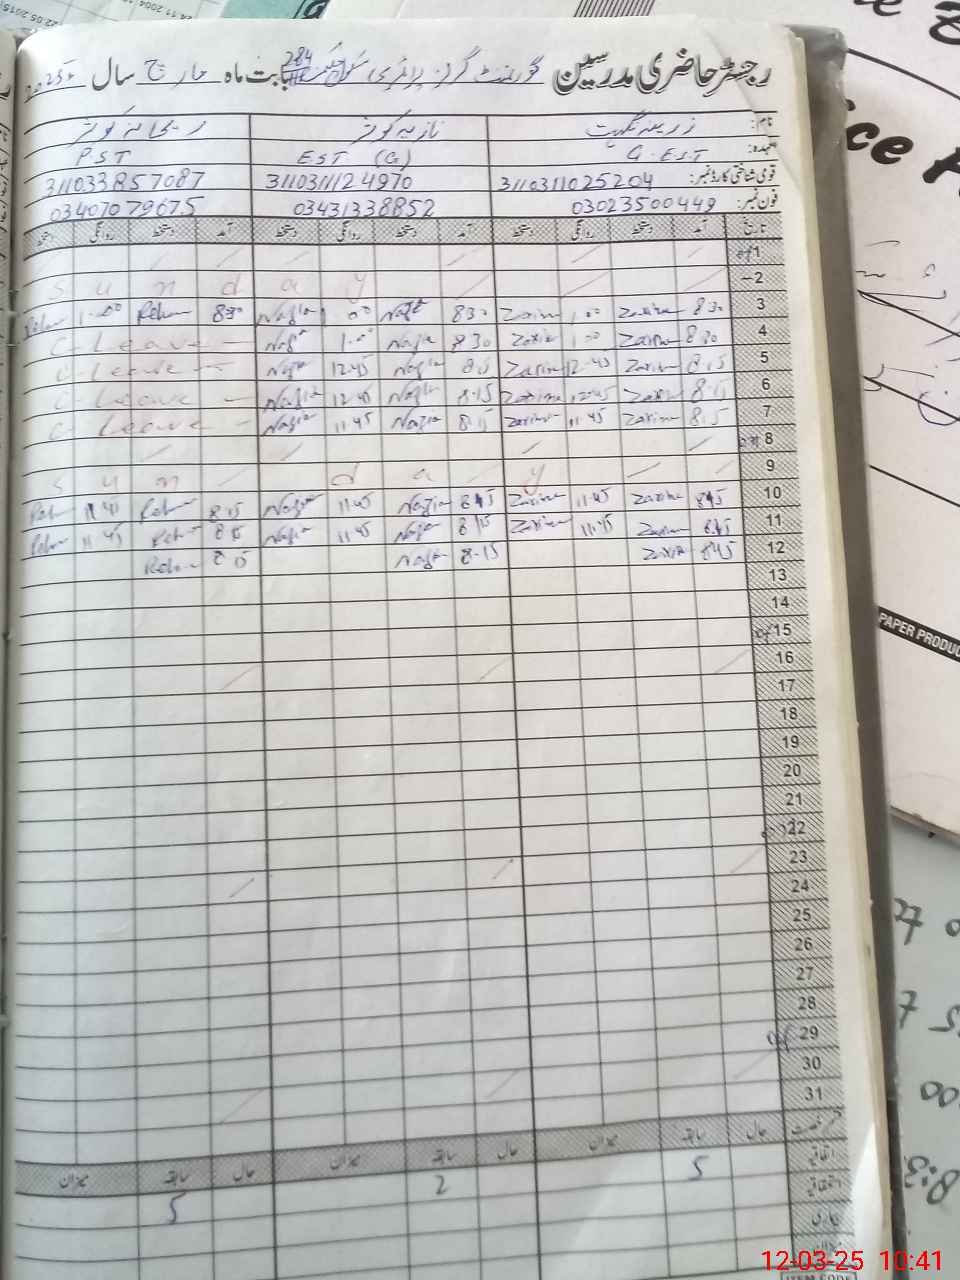 رجسٹر حاضری مدرسین گورنمنٹ گرلز پرائمری سکول چک 284 بابت ماہ مارچ سال 2025ء
نام: زرینہ نگہت نازیہ کوثر ریحانہ کوثر
عہدہ: G.EST EST (G) P.ST
قومی شناختی کارڈ نمبر: 3110311025204 3110311124970 311033857087
فون نمبر: 03023500449 03431338852 03407079675
تاریخ آمد دستخط روانگی دستخط آمد دستخط روانگی دستخط آمد دستخط روانگی دستخط
1
2 S u n d a y
3 8 30 Zarina 1.00 Zarina 8 30 Nazia 1.00 Nazia 8 30 Rehan 1.00 Rehan
4 8 30 Zarina 1.00 Zarina 8 30 Nazia 1.00 Nazia C-Leave
5 8.15 Zarina 12.45 Zarina 8.15 Nazia 12.45 Nazia C-Leave
6 8.15 Zarina 12.45 Zarina 8.15 Nazia 12.45 Nazia C-Leave
7 8.15 Zarina 11.45 Zarina 8.15 Nazia 11.45 Nazia C-Leave
8
9 S u n d a y
10 8.15 Zarina 11.45 Zarina 8.15 Nazia 11.45 Nazia 8.15 Rehan 11.45 Rehan
11 8.15 Zarina 11.45 Zarina 8.15 Nazia 11.45 Nazia 8.15 Rehan 11.45 Rehan
12 8.15 Zarina 8.15 Nazia 8.15 Rehan
13
14
15
16
17
18
19
20
21
22
23
24
25
26
27
28
29
30
31
حال سابقہ میزان حال سابقہ میزان حال سابقہ میزان
اتفاقیہ 5 2 5
PAPER PRODUC
ITEM CODE
12-03-25 10:41